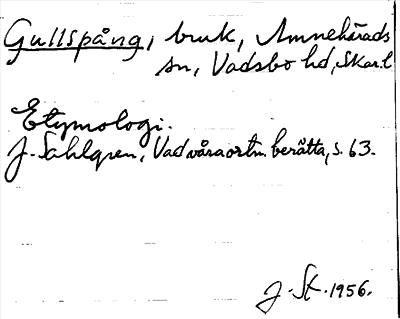 Gullspång, bruk, Amnehärads
sn, Vadsbo hd, Skar.l
Etymologi.
J. Sahlgren, Vad våra ortn. berätta, s. 63.
J. St. 1956.